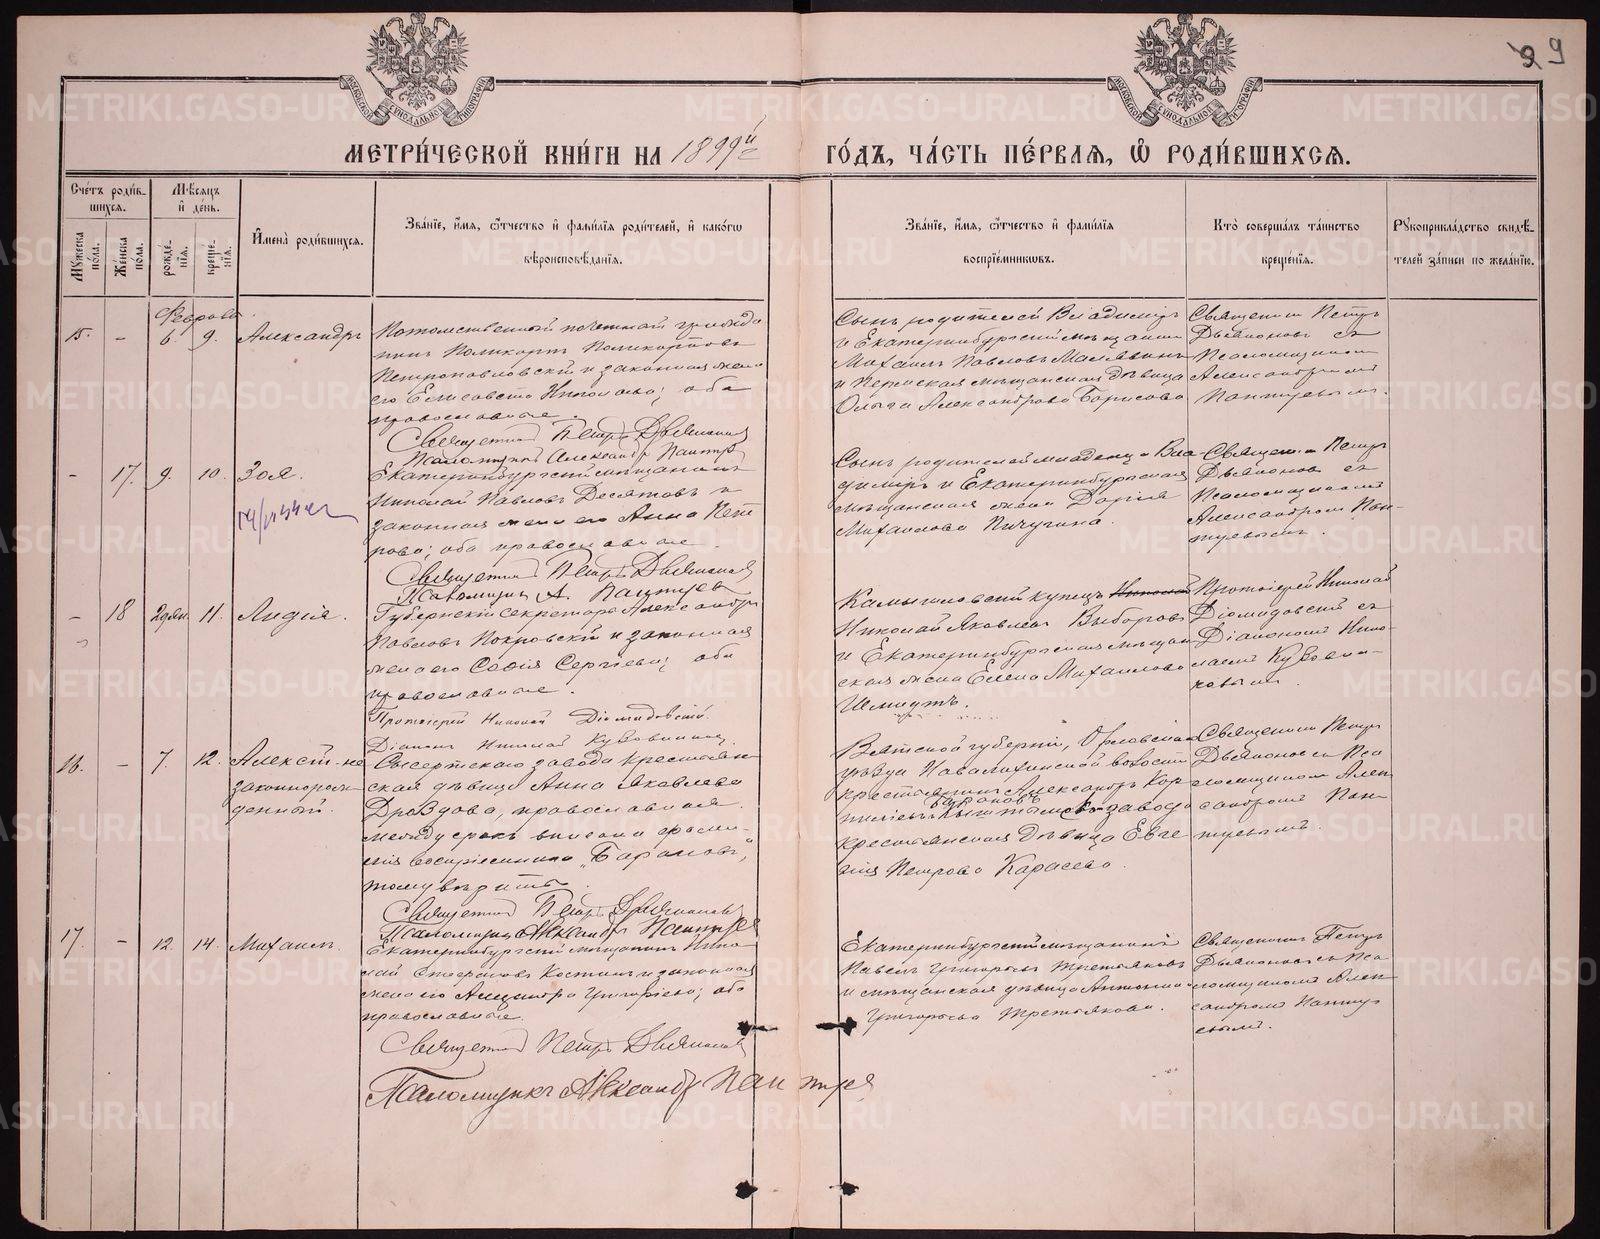 29
МЕТРИ́ЧЕСКОЙ КНИ́ГИ НА 1899й
ГО́ДЪ, ЧА́СТЬ ПЕ́РВАЯ, Ѽ РОДИ́ВШИХСЯ.
Сче́тъ роди́в-
шихся.
Мѣ́сяцъ
и҆ де́нь.
Мꙋ́жеска по́ла.
Же́нска по́ла.
рожде́-
нїѧ.
креще́-
нїѧ.
И҆мена̀ роди́вшихся.
Зва́нїе, и҆́мя, ѻ҆́тчество и҆ фамі́лїя роди́телей, и҆ како́гѡ
вѣроисповѣ́данїя.
Зва́нїе, и҆́мя, ѻ҆́тчество и҆ фамі́лїя
воспрїе́мникѡвъ.
Кто̀ соверша́лъ та́инство
креще́нїя.
Рꙋкоприкла́дство свидѣ́-
телей за́писи по жела́нїю.
Февраль.
15. - 6. 9. Александръ
Потомственный почетный гражда
нинъ Поликарпъ Поликарповъ
Петропавловскій и законная жена
его Елисавета Николаева; оба
православные.
Священникъ Петръ Дьяконовъ
Псаломщикъ Александръ
Сынъ родителей Владиміръ
и Екатеринбургскій мѣщанинъ
Михаилъ Павловъ
и Пермская мѣщанская дѣвица
Ольга Александрова Борисова
Священникъ Петръ
Дьяконовъ съ
Псаломщикомъ
Александромъ
- 17. 9. 10. Зоя.
Екатеринбургскій мѣщанинъ
Николай Павловъ Десятовъ и
законная жена его Анна Пет
рова; оба православные.
Священникъ Петръ Дьяконовъ
Псаломщикъ А.
Сынъ родителей младенца Вла-
диміръ и Екатеринбургская
мѣщанская жена Дарія
Михаилова Пичугина.
Священникъ Петръ
Дьяконовъ съ
Псаломщикомъ
Александромъ Пан-
- 18 29 Ян. 11. Лидія.
Губернскій секретарь Александръ
Павловъ Покровскій и законная
жена его Софія Сергіева; оба
православные.
Протоіерей Николай Діомидовскій.
Діаконъ Николай
Камышловскій купецъ Николай
Николай Яковлевъ Выборовъ
и Екатеринбургская мѣщан
ская жена Елена Михаилова
Шмидтъ.
Протоіерей Николай
Діомидовскій съ
Діакономъ Нико-
лаемъ
16. - 7. 12. Алексѣй не
законнорож-
денный.
Сысертскаго завода крестьян
ская дѣвица Анна Яковлева
Дроздова, православная.
между строкъ вписана фами-
лія воспріемника „Барановъ",
тому вѣрить.
Священникъ Петръ Дьяконовъ
Псаломщикъ Александръ
Вятской губерніи, Орловскаго
уѣзда волости
крестьянинъ Александръ Кор-
ниліевъ Барановъ Кыштымскаго завода
крестьянская дѣвица Евге
нія Петрова Карасева.
Священникъ Петръ
Дьяконовъ съ Пса
ломщикомъ Алек
сандромъ Пан-
17. - 12. 14. Михаилъ.
Екатеринбургскій мѣщанинъ Нико
лай Стефановъ Костинъ и законная
жена его Григоріева; оба
православные.
Священникъ Петръ Дьяконовъ
Псаломщикъ Александръ
Екатеринбургскій мѣщанинъ
Павелъ Григорьевъ Третьяковъ
и мѣщанская дѣвица Антонина
Григорьева Третьякова.
Священникъ Петръ
Дьяконовъ съ Пса
ломщикомъ Алек
сандромъ